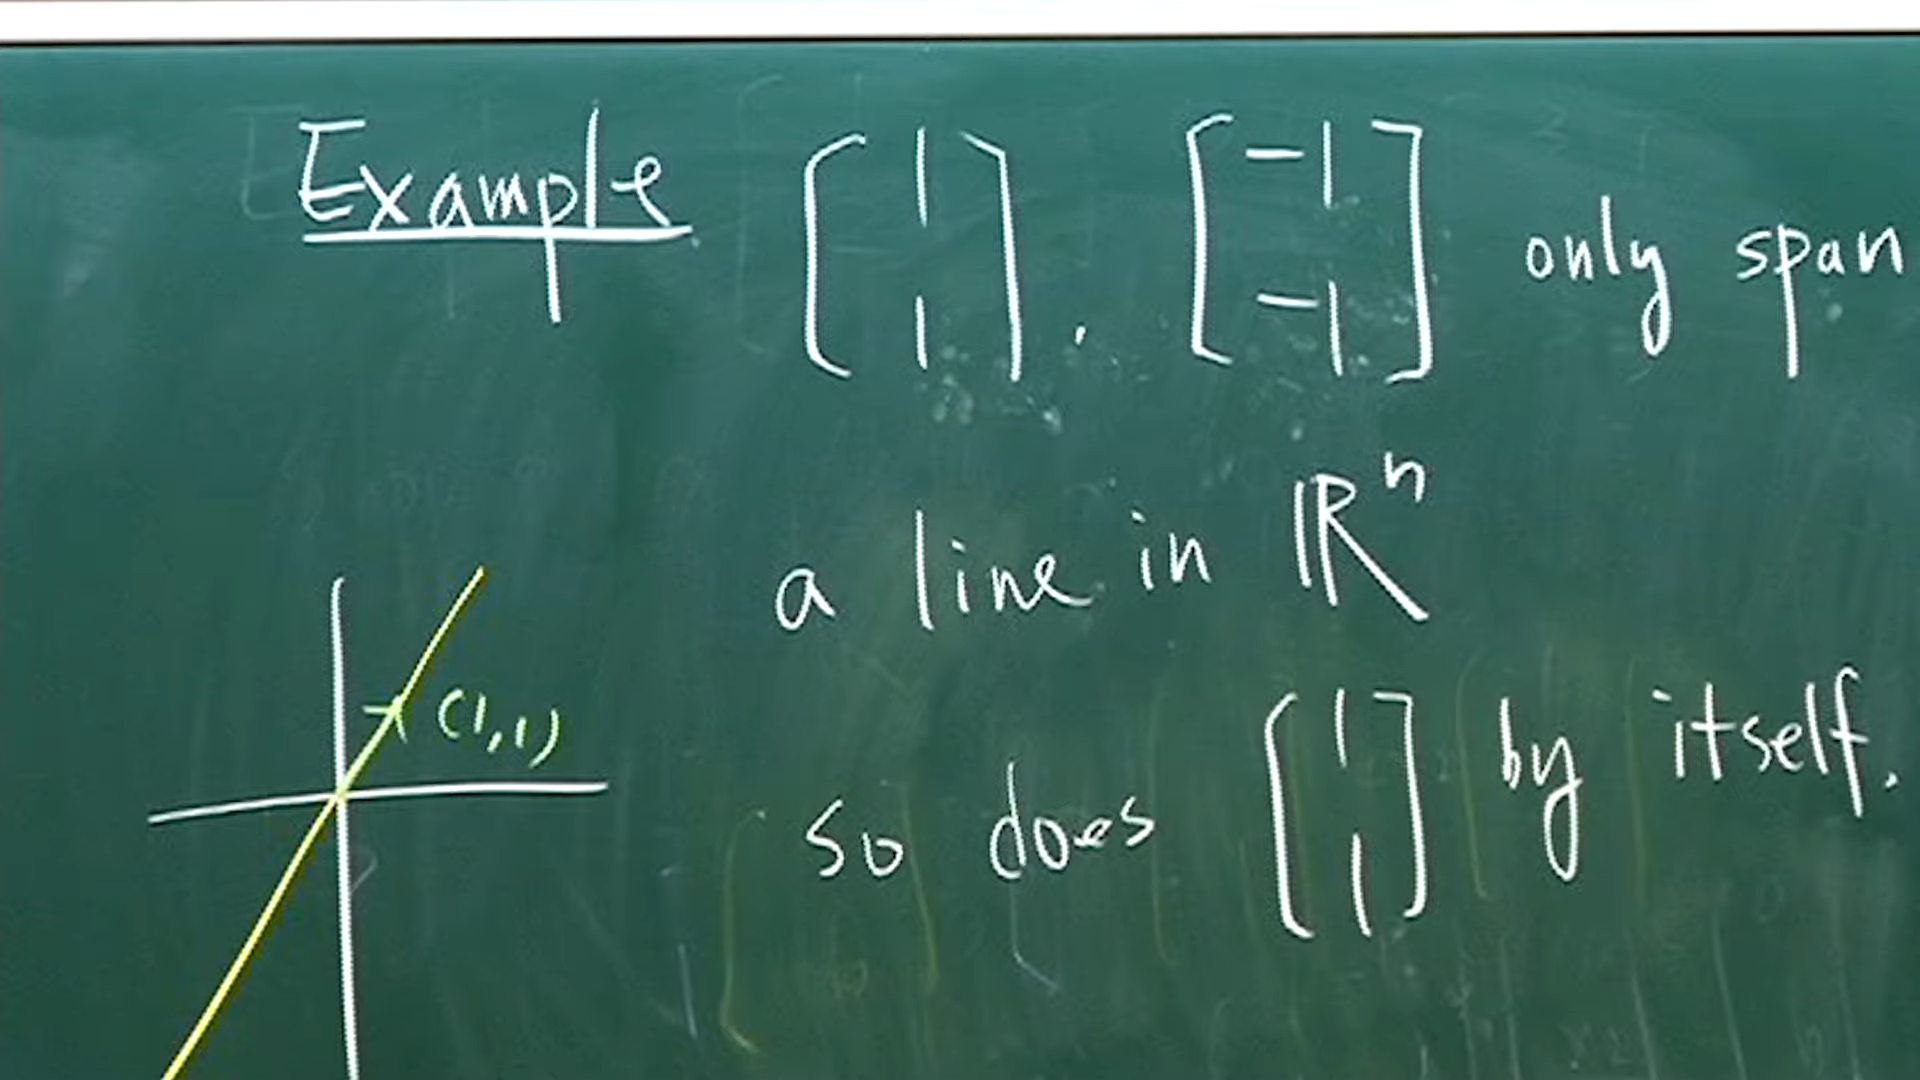 Example [1 1], [-1 -1] only span
a line in ℝⁿ
(1,1)
so does [1 1] by itself.